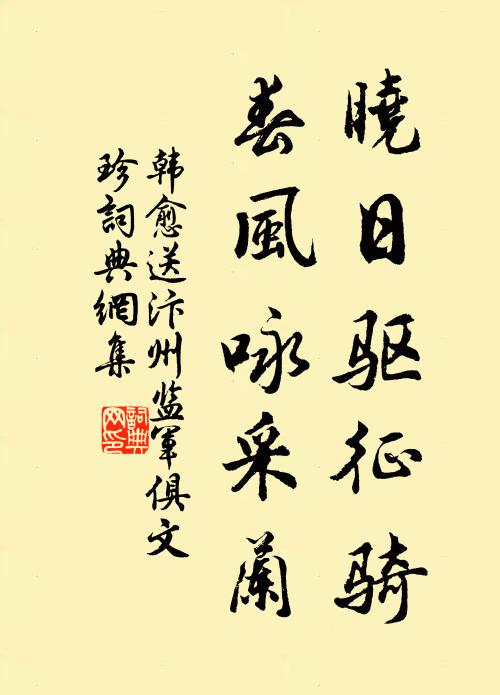 曉日驱征骑
春風咏采蘭
韩愈送汴州监軍俱文
珍詞典網集
詞典
网印